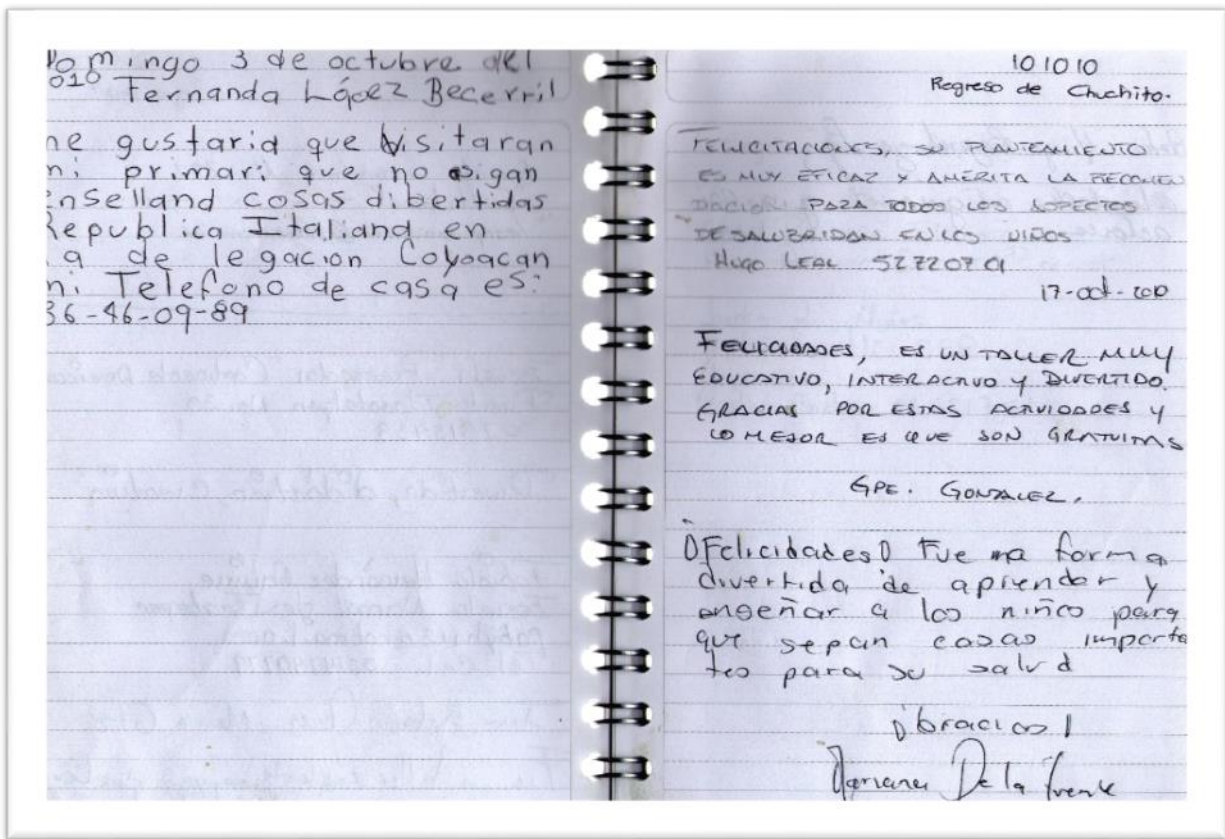 Domingo 3 de octubre del
010 Fernanda López Becerril
me gustaria que visitaran
mi primari que no sigan
enselland cosas dibertidas
Republica Italiana en
la de legacion Coyoacan
mi Telefono de casa es:
36-46-09-89
101010
Regreso de Chuchito.
FELICITACIONES, SU PLANTEAMIENTO
ES MUY EFICAZ Y AMERITA LA RECOMEN
DACION PARA TODOS LOS ASPECTOS
DE SALUBRIDAD EN LOS NIÑOS
HUGO LEAL 52720701
17-oct-2010
FELICIDADES, ES UN TALLER MUY
EDUCATIVO, INTERACTIVO Y DIVERTIDO.
GRACIAS POR ESTAS ACTIVIDADES Y
LO MEJOR ES QUE SON GRATUITAS
GPE. GONZALEZ.
¡Felicidades! Fue una forma
divertida de aprender y
enseñar a los niño para
que sepan cosas importa
tes para su salud
¡Gracias!
Mariana De la Fuente